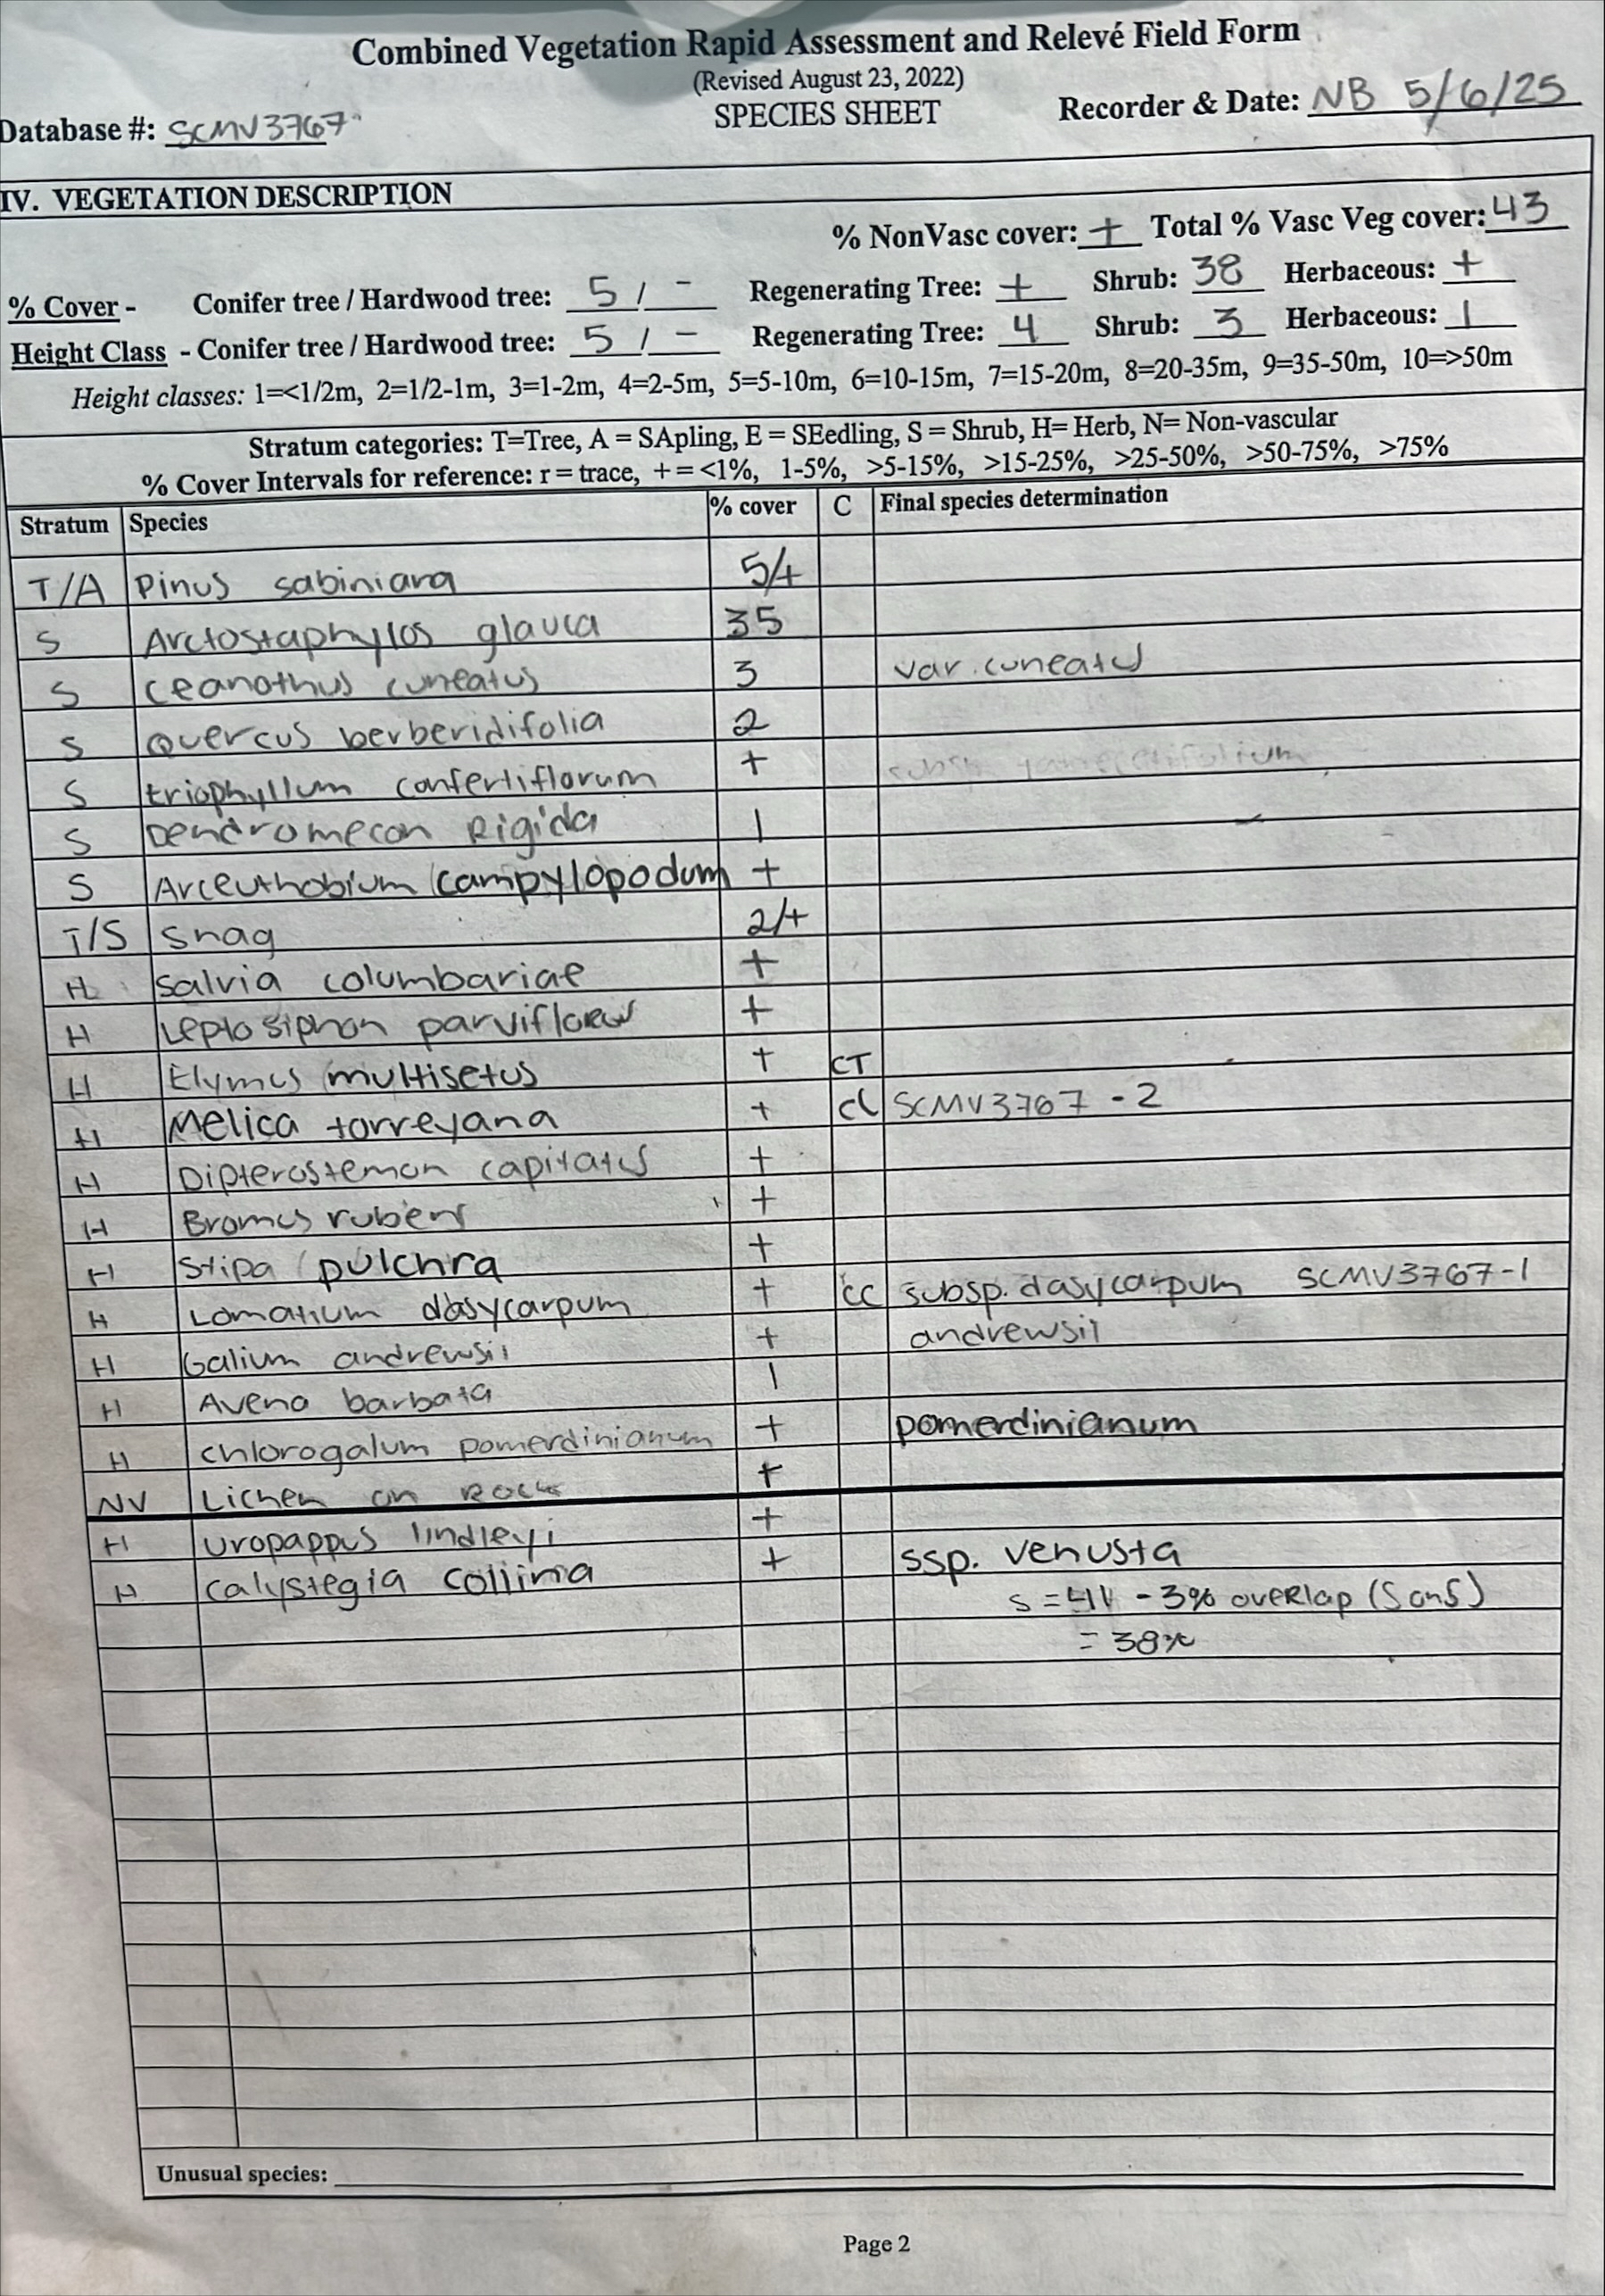 Combined Vegetation Rapid Assessment and Relevé Field Form
(Revised August 23, 2022)
Database #: SCMV3767 SPECIES SHEET Recorder & Date: NB 5/6/25
IV. VEGETATION DESCRIPTION
% NonVasc cover: + Total % Vasc Veg cover: 43
% Cover - Conifer tree / Hardwood tree: 5 / - Regenerating Tree: + Shrub: 38 Herbaceous: +
Height Class - Conifer tree / Hardwood tree: 5 / - Regenerating Tree: 4 Shrub: 3 Herbaceous: 1
Height classes: 1=<1/2m, 2=1/2-1m, 3=1-2m, 4=2-5m, 5=5-10m, 6=10-15m, 7=15-20m, 8=20-35m, 9=35-50m, 10=>50m
Stratum categories: T=Tree, A = SApling, E = SEedling, S = Shrub, H= Herb, N= Non-vascular
% Cover Intervals for reference: r = trace, + = <1%, 1-5%, >5-15%, >15-25%, >25-50%, >50-75%, >75%
Stratum Species % cover C Final species determination
T/A Pinus sabiniana 5/+
S Arctostaphylos glauca 35
S Ceanothus cuneatus 3 var. cuneatus
S Quercus berberidifolia 2
S Eriophyllum confertiflorum + subsp.
S Dendromecon Rigida 1
S Arceuthobium campylopodum +
T/S Snag 2/+
H Salvia columbariae +
H Leptosiphon parviflorus +
H Elymus multisetus + CT
H Melica torreyana + CL SCMV3767 - 2
H Dipterostemon capitatus +
H Bromus rubens +
H Stipa pulchra +
H Lomatium dasycarpum + CC subsp. dasycarpum SCMV3767-1
H Galium andrewsii + andrewsii
H Avena barbata 1
H Chlorogalum pomerdinianum + pomerdinianum
NV Lichen on Rock +
H Uropappus lindleyi +
H Calystegia collina + ssp. venusta
S = 41 - 3% overlap (S on S)
= 38%
Unusual species:
Page 2